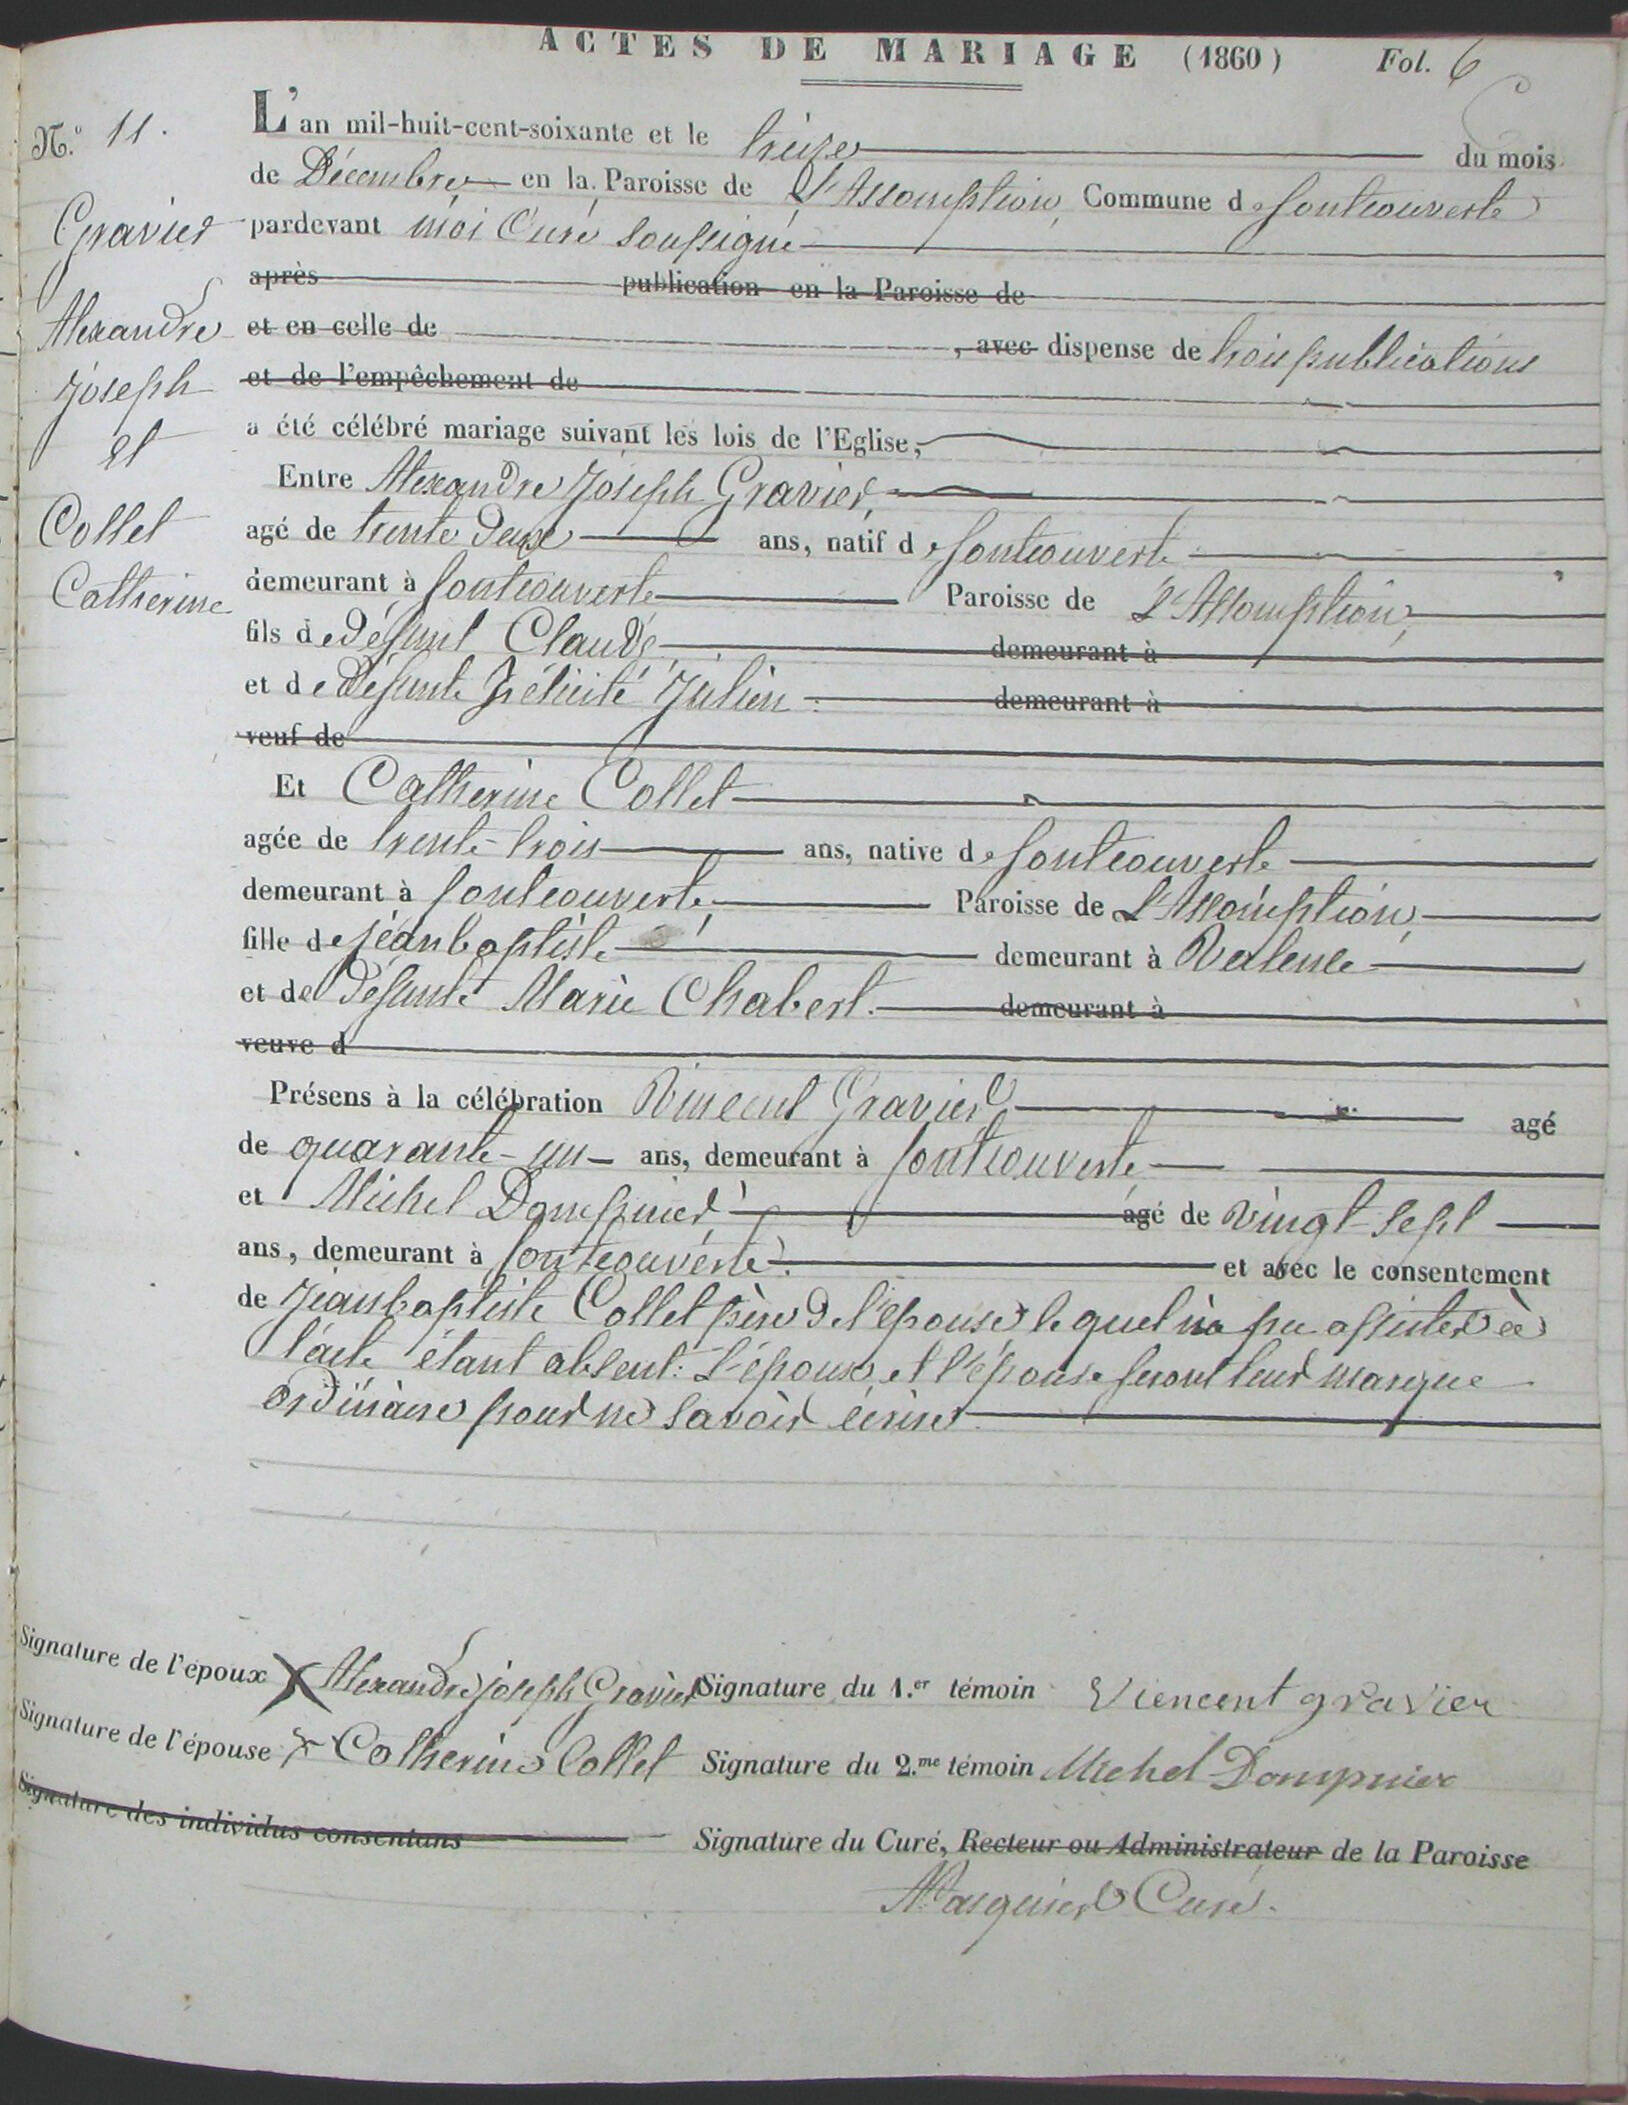 ACTES DE MARIAGE (1860) Fol. 6
N.º 11.
L'an mil-huit-cent-soixante et le treize du mois
de Décembre en la Paroisse de L'Assomption, Commune de fontcouverte
pardevant moi Curé soussigné
après publication en la Paroisse de
et en celle de , avec dispense de trois publications
et de l'empêchement de
a été célébré mariage suivant les lois de l'Eglise,
Gravier
Alexandre
Joseph
et
Collet
Catherine
Entre Alexandre Joseph Gravier,
agé de trente deux ans, natif de fontcouverte
demeurant à fontcouverte Paroisse de L'Assomption,
fils de défunt Claude demeurant à
et de défunte Félicité Julien demeurant à
veuf de
Et Catherine Collet
agée de trente-trois ans, native de fontcouverte
demeurant à fontcouverte, Paroisse de L'Assomption,
fille de jeanbaptiste demeurant à Valence
et de défunte Marie Chabert. demeurant à
veuve d
Présens à la célébration Vincent Gravier agé
de quarante-un ans, demeurant à fontcouverte
et Michel Dompnier agé de vingt-sept
ans, demeurant à fontcouverte. et avec le consentement
de Jeanbaptiste Collet père de l'épouse lequel n'a pu assister à
l'acte étant absent: L'époux et l'épouse feront leur marque
ordinaire pour ne savoir écrire
Signature de l'époux X Alexandre joseph Gravier Signature du 1.er témoin Viencent gravier
Signature de l'épouse X Catherine Collet Signature du 2.me témoin Michel Dompnier
Signature des individus consentans
Signature du Curé, Recteur ou Administrateur de la Paroisse
Curé.